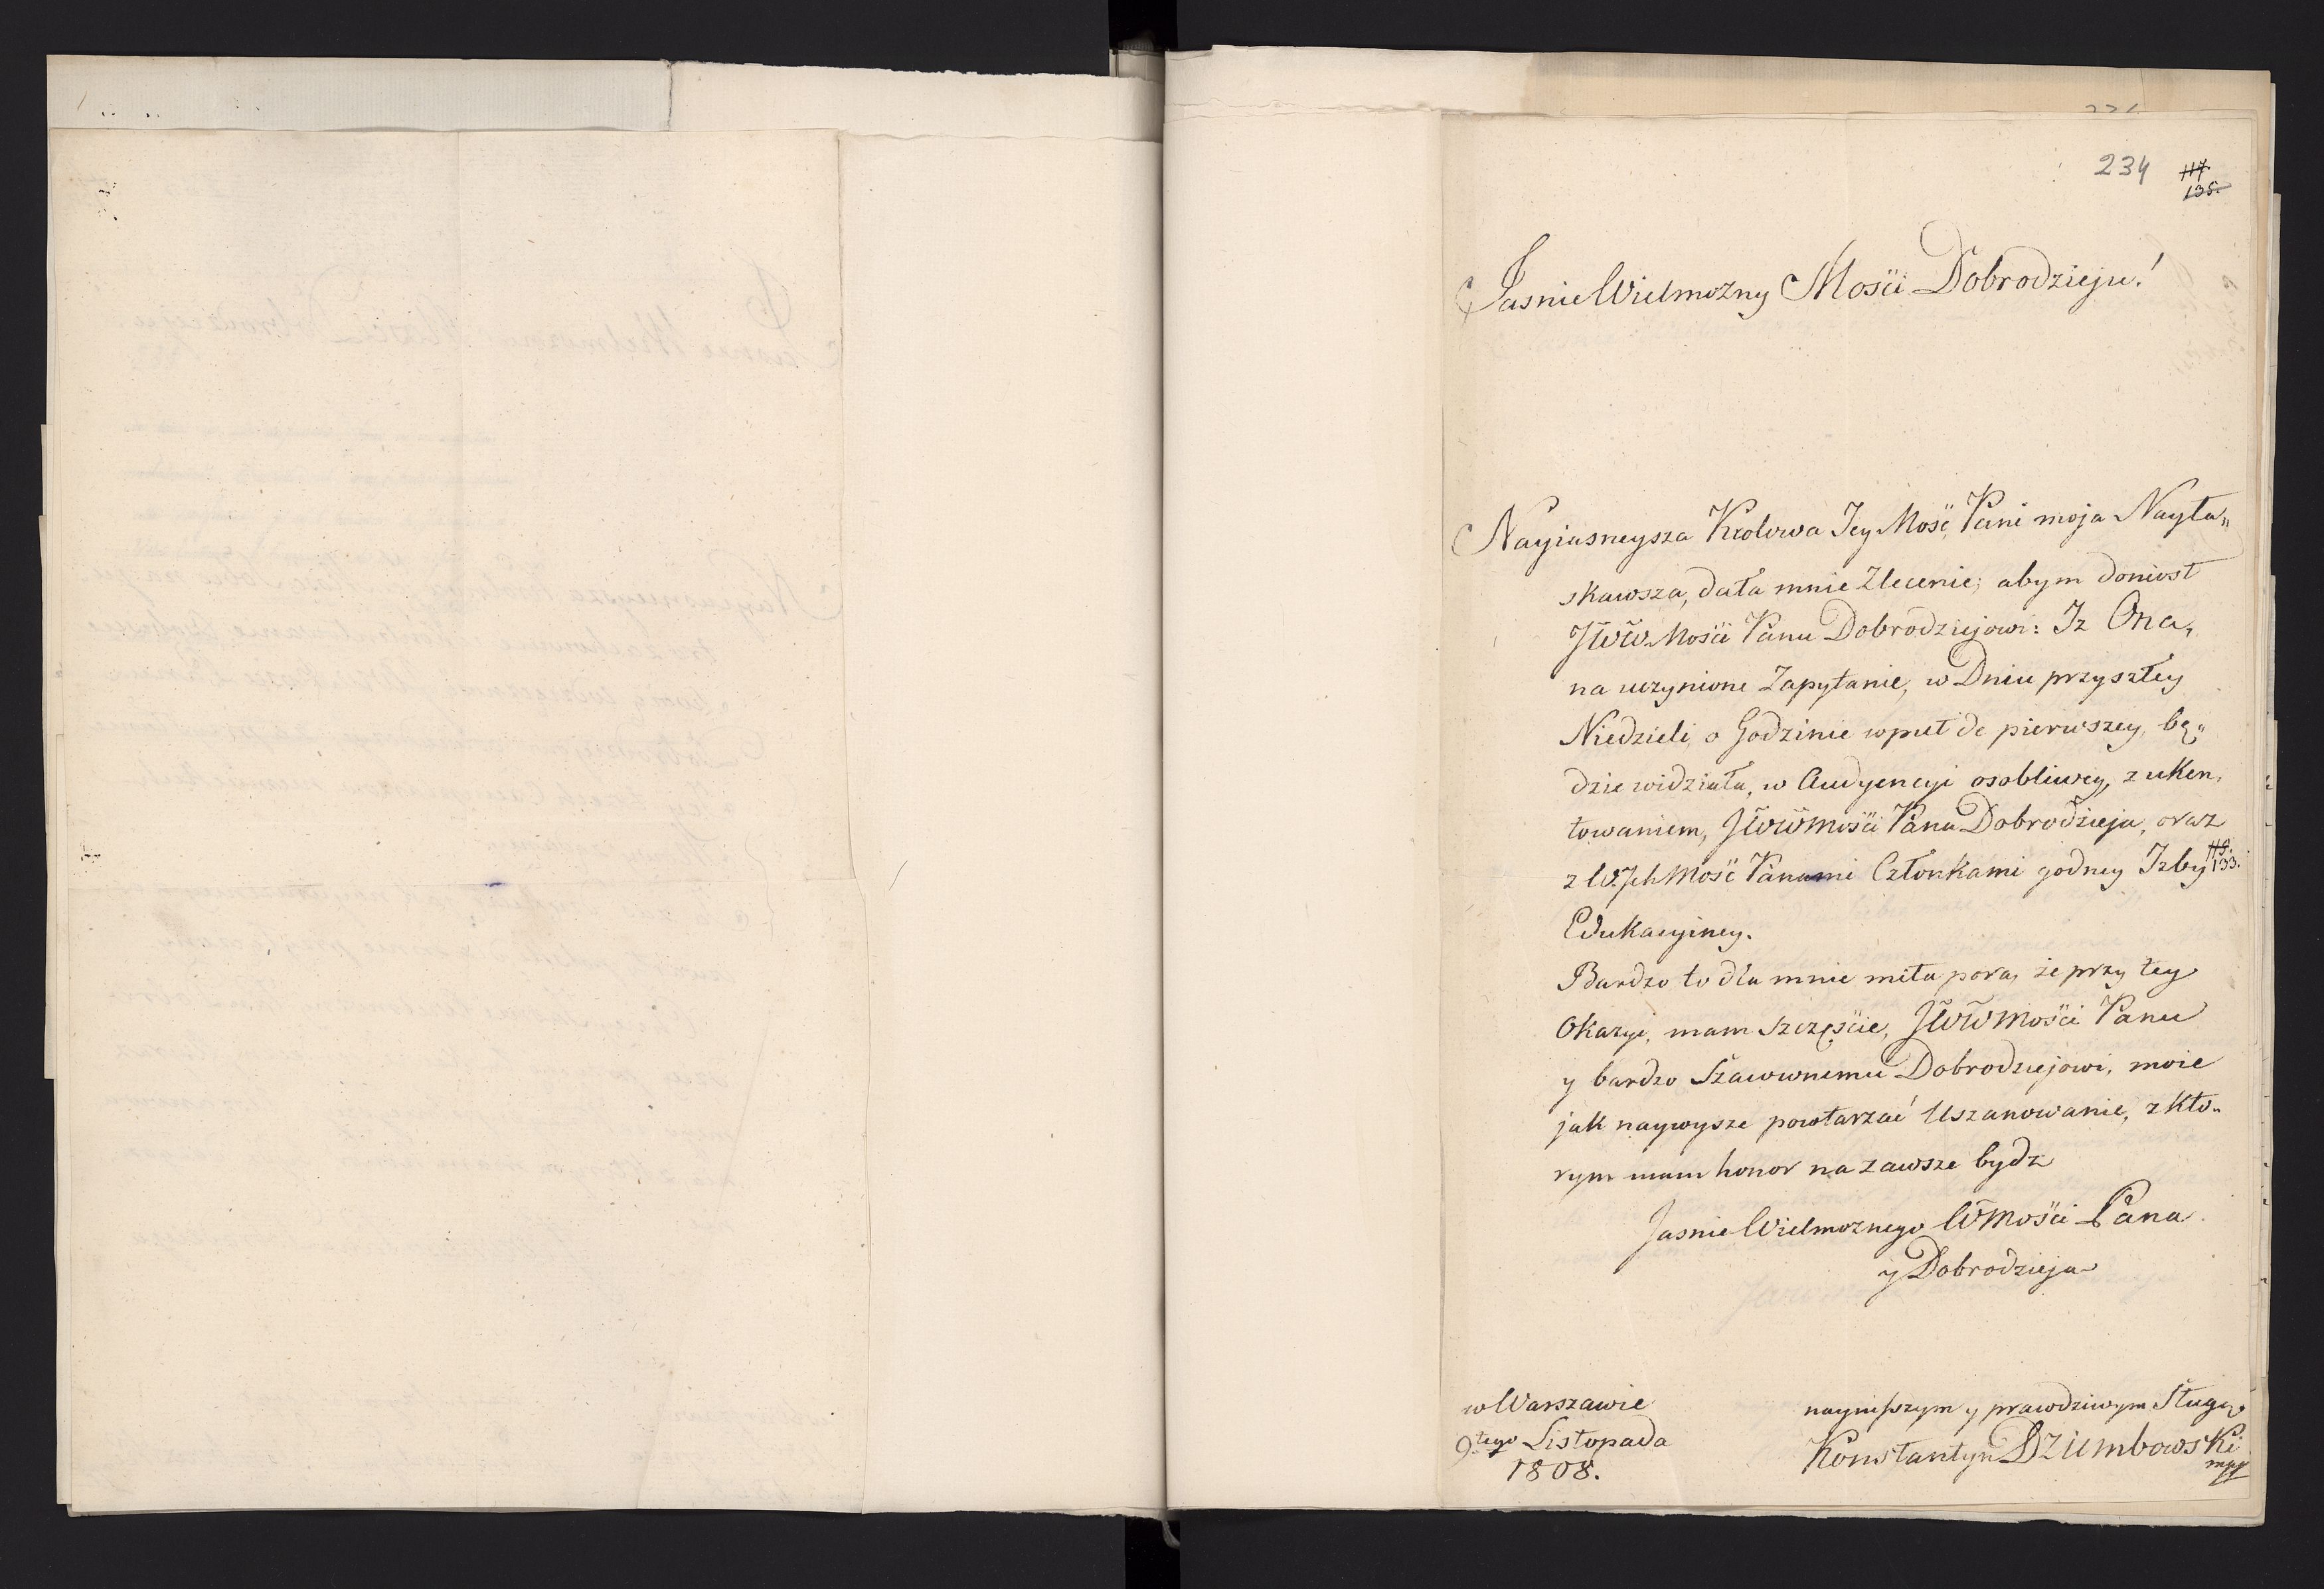 221
234
117.
135.
Jasnie Wielmożny Mości Dobrodzieju!
Nayiasneysza Krolowa Jey Mość, Pani moja Nayła„
skawsza, dała mnie Zlecenie; abym doniosł
JWW Mości Panu Dobrodziejowi: Iz Ona,
na uczynione Zapytanie, w Dniu przyszłey
Niedzieli, o Godzinie wpuł do pierwszey, bę„
dzie widziała, w Audyencyi osobliwey, z uken,
towaniem, JWWMości Pana Dobrodzieja, oraz
z W.Jch Mość Panami Członkami godney Izby
119.
133.
Edukacyiney.
Bardzo to dla mnie miła pora, że przy tey
Okazyi, mam Szczęście, JWWMości Panu
y bardzo Szawwnemu Dobrodziejowi, moie
jak naywysze powtarzać Uszanowanie, z kto„
rym mam honor na zawsze bydz
Jasnie Wielmoznego WMości Pana
y Dobrodzieja
w Warszawie
9tego Listopada
1808.
nayniszszym y prawdziwym Sługą
Konstantyn Dziembowski
mpp